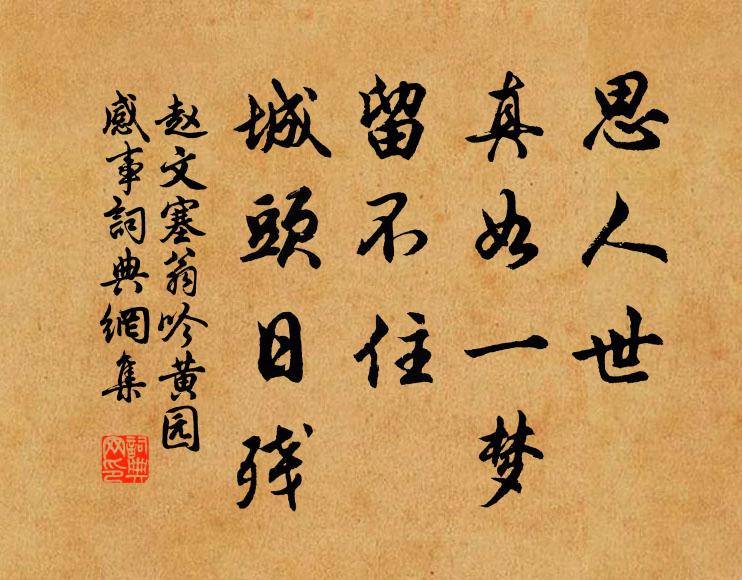 思人世
真如一梦
留不住
城頭日残
赵文塞翁吟黄园
感事詞典網集
詞典
网印